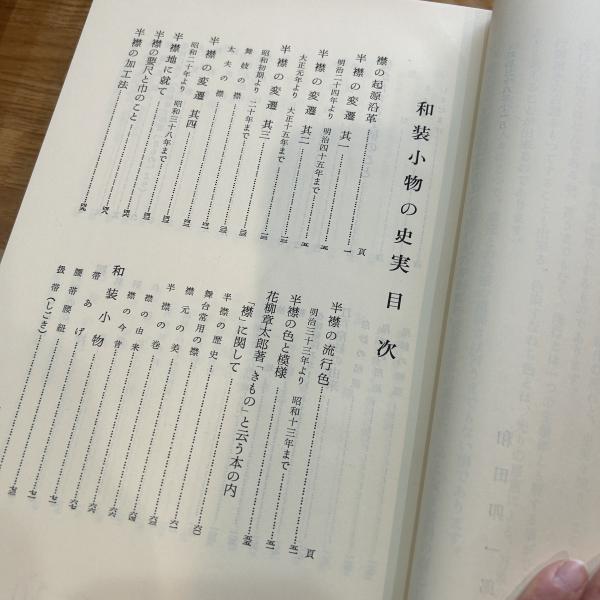 和装小物の史実 目次
頁
襟の起源沿革
半襟の変遷 其一
明治二十四年より 明治四十五年まで
半襟の変遷 其二
大正元年より 大正十五年まで
半襟の変遷 其三
昭和初期より 二十年まで
舞妓の襟
太夫の襟
半襟の変遷 其四
昭和二十年より 昭和三十八年まで
半襟地に就て
半襟の要尺と巾のこと
半襟の加工法
頁
半襟の流行色
明治三十三年より 昭和十三年まで
半襟の色と模様
花柳章太郎著「きもの」と云う本の内
「襟」に関して
半襟の歴史
舞台常用の襟
襟元の美
半襟の巻
襟の由来
襟の今昔
和装小物
帯あげ
腰帯腰紐
扱帯(しごき)
和田卯一郎